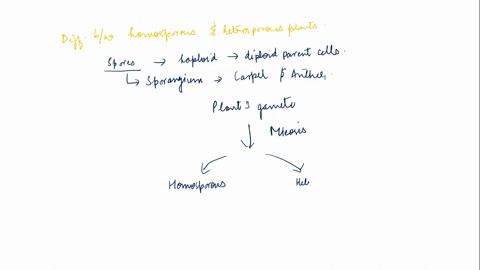 Diff. b/w homosporous & heterosporous plants.
Spores → haploid → diploid parent cells.
↳ Sporangium → Carpel & Anther.
Plant's gamete
Meiosis
Homosporous Het